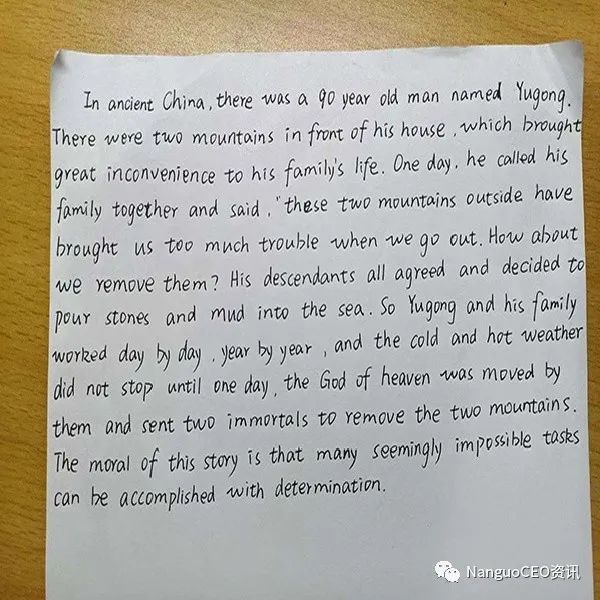 In ancient China, there was a 90 year old man named Yugong.
There were two mountains in front of his house, which brought
great inconvenience to his family's life. One day, he called his
family together and said, "these two mountains outside have
brought us too much trouble when we go out. How about
we remove them? His descendants all agreed and decided to
pour stones and mud into the sea. So Yugong and his family
worked day by day, year by year, and the cold and hot weather
did not stop until one day, the God of heaven was moved by
them and sent two immortals to remove the two mountains.
The moral of this story is that many seemingly impossible tasks
can be accomplished with determination.
NanguoCEO资讯